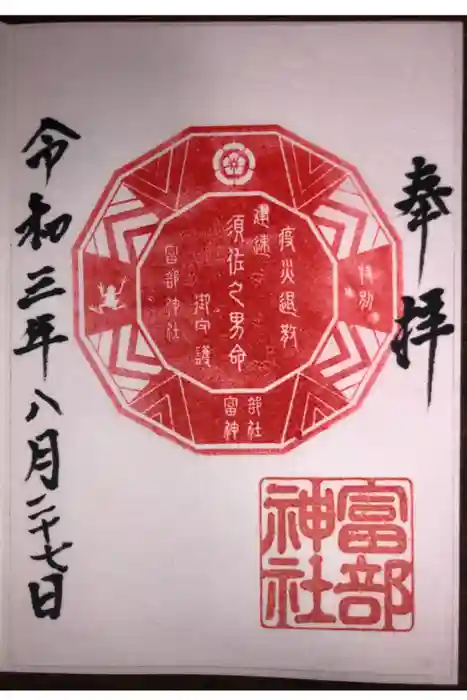 奉拝
特別
疫災退散
建速
須佐之男命
御守護
富部神社
富部
神社
富部
神社
令和三年八月二十七日